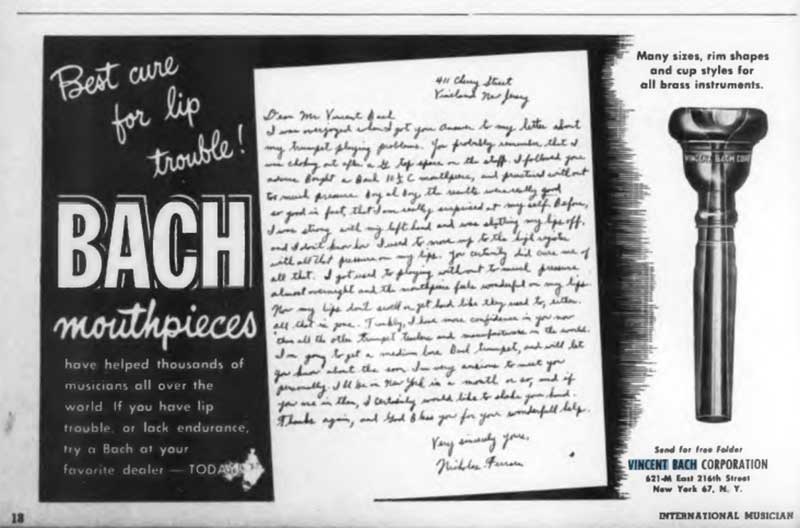 Best cure
for lip
trouble!
BACH
mouthpieces
have helped thousands of
musicians all over the
world. If you have lip
trouble, or lack endurance,
try a Bach at your
favorite dealer — TODAY
411 Cherry Street
Vineland New Jersey
Dear Mr. Vincent Bach
I was overjoyed when I got your answer to my letter about
my trumpet playing problems. You probably remember, that I
was choking out after a G top space on the staff. I followed your
advice. Bought a Bach 10½ C mouthpiece, and practiced without
to much pressure. Day by Day, the results were really good
so good in fact, that I am really surprised at my self. Before,
I was strong with my left hand and was my lips off,
and I don't know how I used to move up to the high register
with all that pressure on my lips. You certainly did cure me of
all that. I got used to playing without to much pressure
almost overnight and the mouthpiece feels wonderful on my lips.
Now my lips don't swell or get like they used to, either.
all that is gone. Frankly, I have more confidence in you now
than all the other trumpet teachers and manufacturers in the world.
I'm going to get a medium bore Bach trumpet, and will let
you know about the soon. I'm very anxious to meet you
personally. I'll be in New York in a month or so, and if
you are in then, I certainly would like to shake your hand.
Thanks again, and God Bless you for your wonderfull help.
Very sincerely yours,
Nicholas
Many sizes, rim shapes
and cup styles for
all brass instruments.
VINCENT BACH CORP
Send for free Folder
VINCENT BACH CORPORATION
621-M East 216th Street
New York 67, N. Y.
18
INTERNATIONAL MUSICIAN